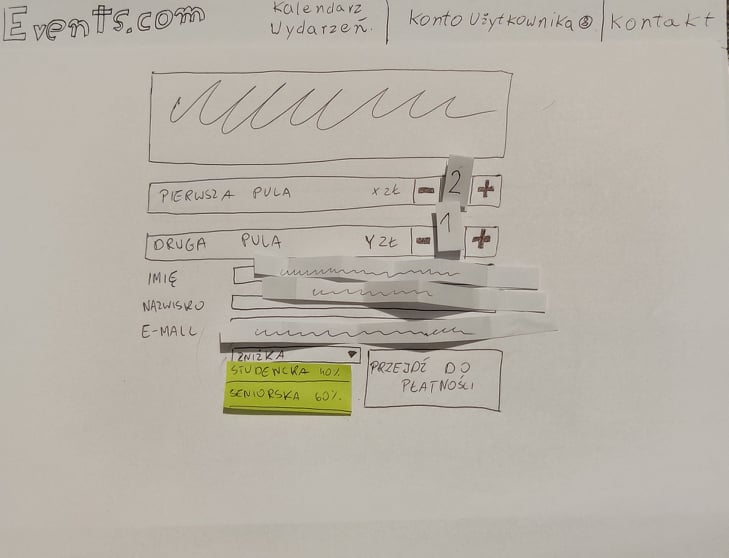 Events.com
Kalendarz
Wydarzeń.
Konto Użytkownika
Kontakt
PIERWSZA PULA X ZŁ - 2 +
DRUGA PULA Y ZŁ - 1 +
IMIĘ
NAZWISKO
E-MAIL
ZNIŻKA
STUDENCKA 40%
SENIORSKA 60%
PRZEJDŹ DO
PŁATNOŚCI